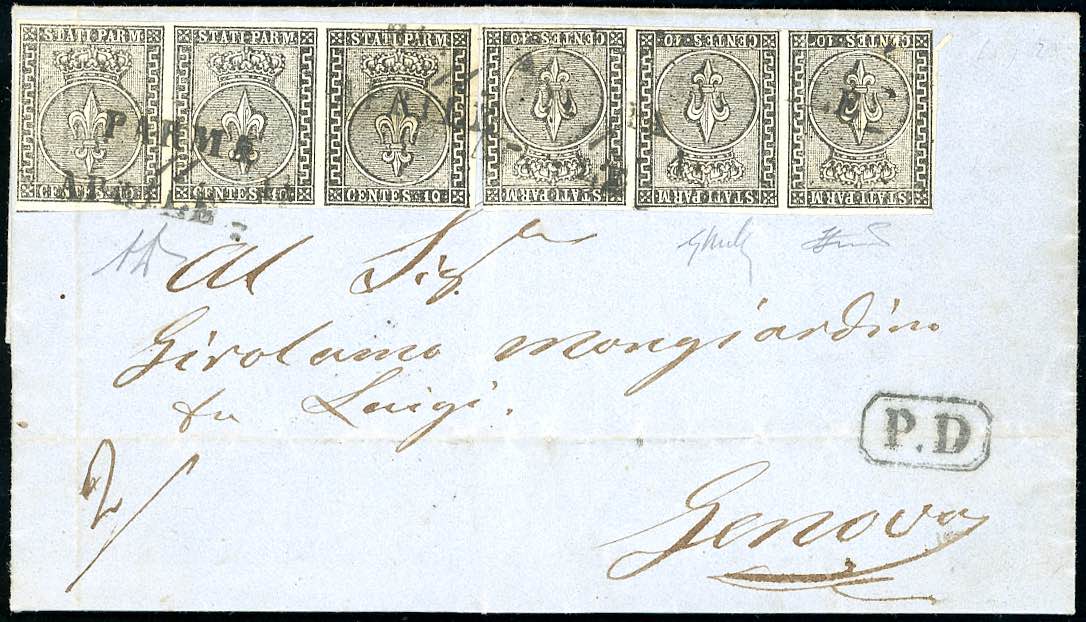 STATI PARM STATI PARM STATI PARM CENTES. 10. CENTES. 10. CENTES. 10.
PARMA
APRILE
CENTES. 10. CENTES. 10. CENTES. 10. STATI PARM STATI PARM STATI PARM
Al Sig.r
Girolamo Mongiardino
fu Luigi.
P.D
2
Genova